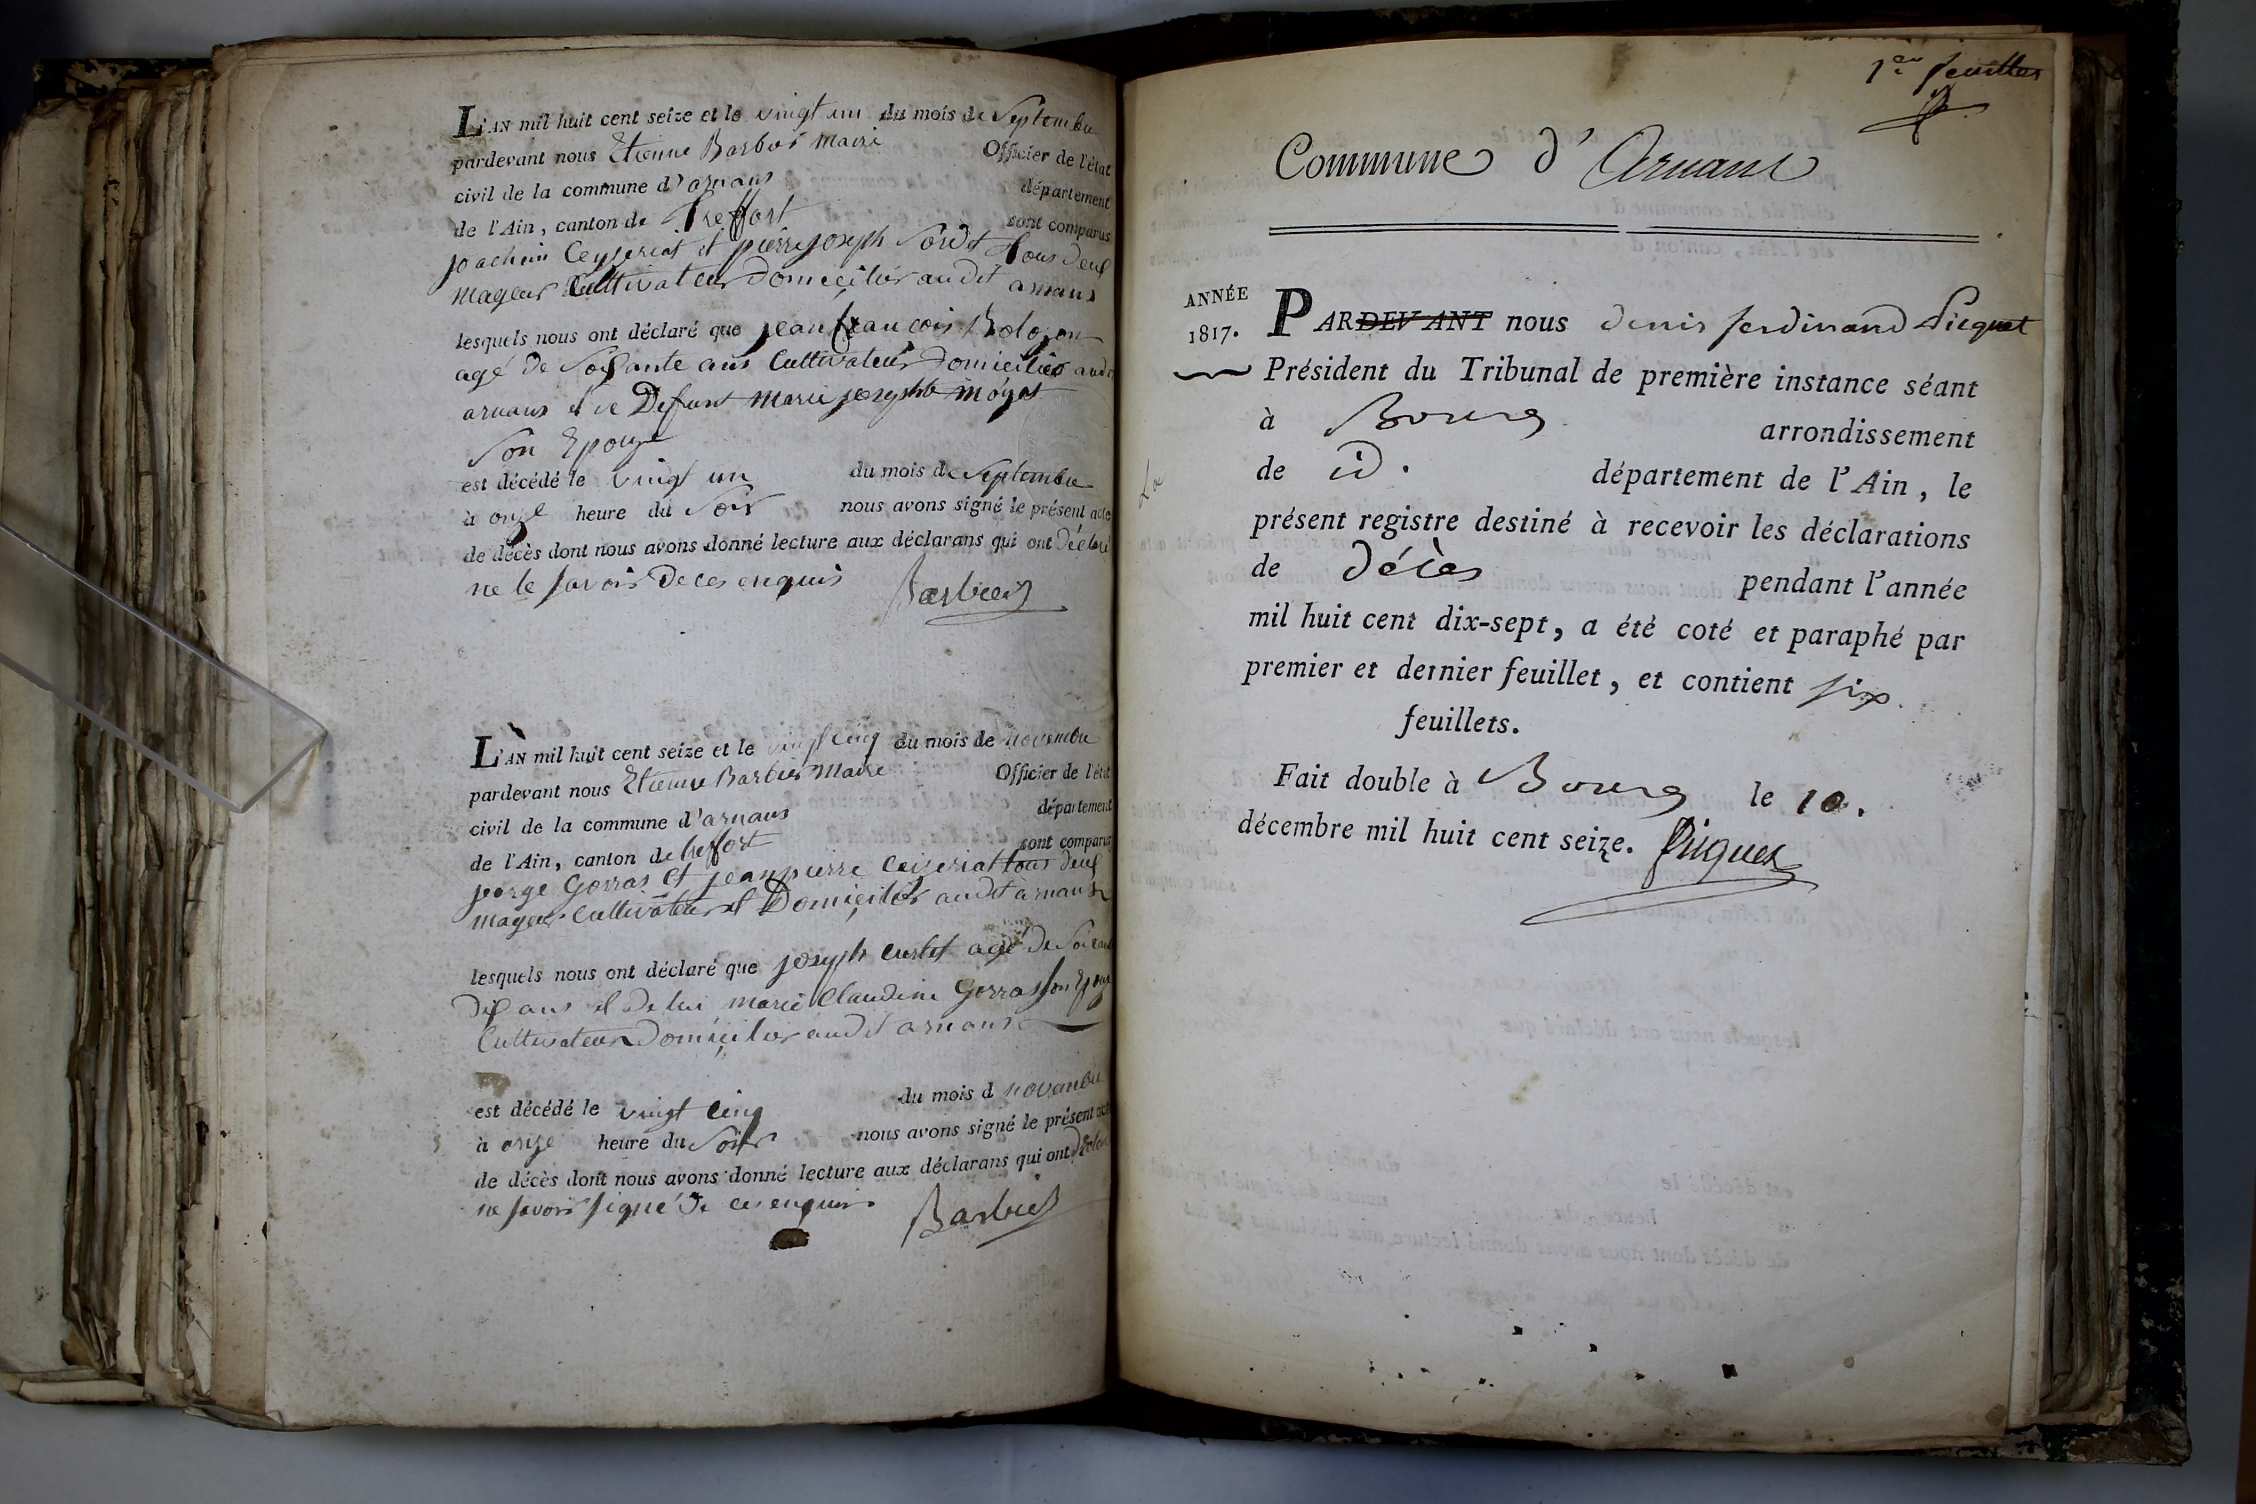 L'AN mil huit cent seize et le vingt un du mois de Septembre
pardevant nous Etienne Barbier maire Officier de l'état
civil de la commune d'arnans département
de l'Ain, canton de treffort sont comparus
joachim Ceyzeriat et pierre joseph Sordet tous deux
mageur Cultivateur Domicilier audit arnans
lesquels nous ont déclaré que jean francois Bolozon
agé de Soixante ans Cultivateur Domicilier audit
arnans et ve Defunt marie josephte
Son Epouze
est décédé le vingt un du mois de Septembre
à onze heure du Soir nous avons signé le présent acte
de décès dont nous avons donné lecture aux déclarans qui ont déclaré
ne le savoir De ces enquis Barbier
L'AN mil huit cent seize et le vingt cinq du mois de novembre
pardevant nous Etienne Barbier Maire Officier de l'état
civil de la commune d'arnans département
de l'Ain, canton de treffort sont comparus
jorge Gorras et jean pierre ceizeriat tous deux
mageur Cultivateur et Domicilier audit arnans
lesquels nous ont déclaré que joseph curtet agé de Soixante
Dix ans et de lui marie Claudine Gorras Son Epouze
Cultivateur Domicilier audit arnans
est décédé le vingt cinq du mois d novembre
à onze heure du Soir nous avons signé le présent acte
de décès dont nous avons donné lecture aux déclarans qui ont Déclaré
ne savoir signé de ces enquis Barbier
1er feuillet
Commune d'Arnans
ANNÉE
1817.
PARDEVANT nous denis ferdinand Picquet
Président du Tribunal de première instance séant
à Bourg arrondissement
de id. département de l'Ain, le
présent registre destiné à recevoir les déclarations
de décès pendant l'année
mil huit cent dix-sept, a été coté et paraphé par
premier et dernier feuillet, et contient six
feuillets.
Fait double à Bourg le 10.
décembre mil huit cent seize. Picquet